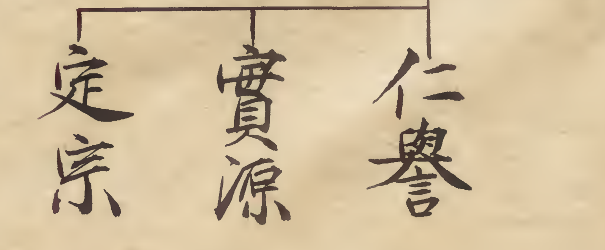 仁譽
實源
定宗